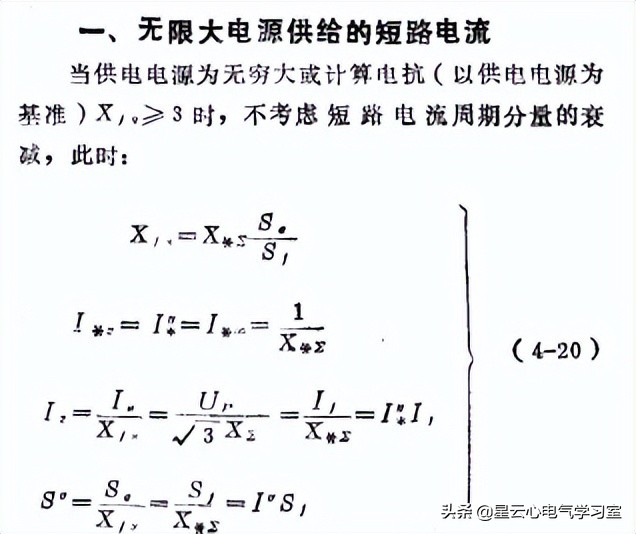 一、无限大电源供给的短路电流
当供电电源为无穷大或计算电抗(以供电电源为
基准)X_js≥3时，不考虑短路电流周期分量的衰
减，此时：
X_js = X_*Σ S_e/S_j
I_*z = I"_* = I_*∞ = 1/X_*Σ
(4-20)
I_z = I_e/X_js = U_p/√3 X_Σ = I_j/X_*Σ = I"_* I_j
S" = S_e/X_js = S_j/X_*Σ = I" S_j
头条 @星云心电气学习室